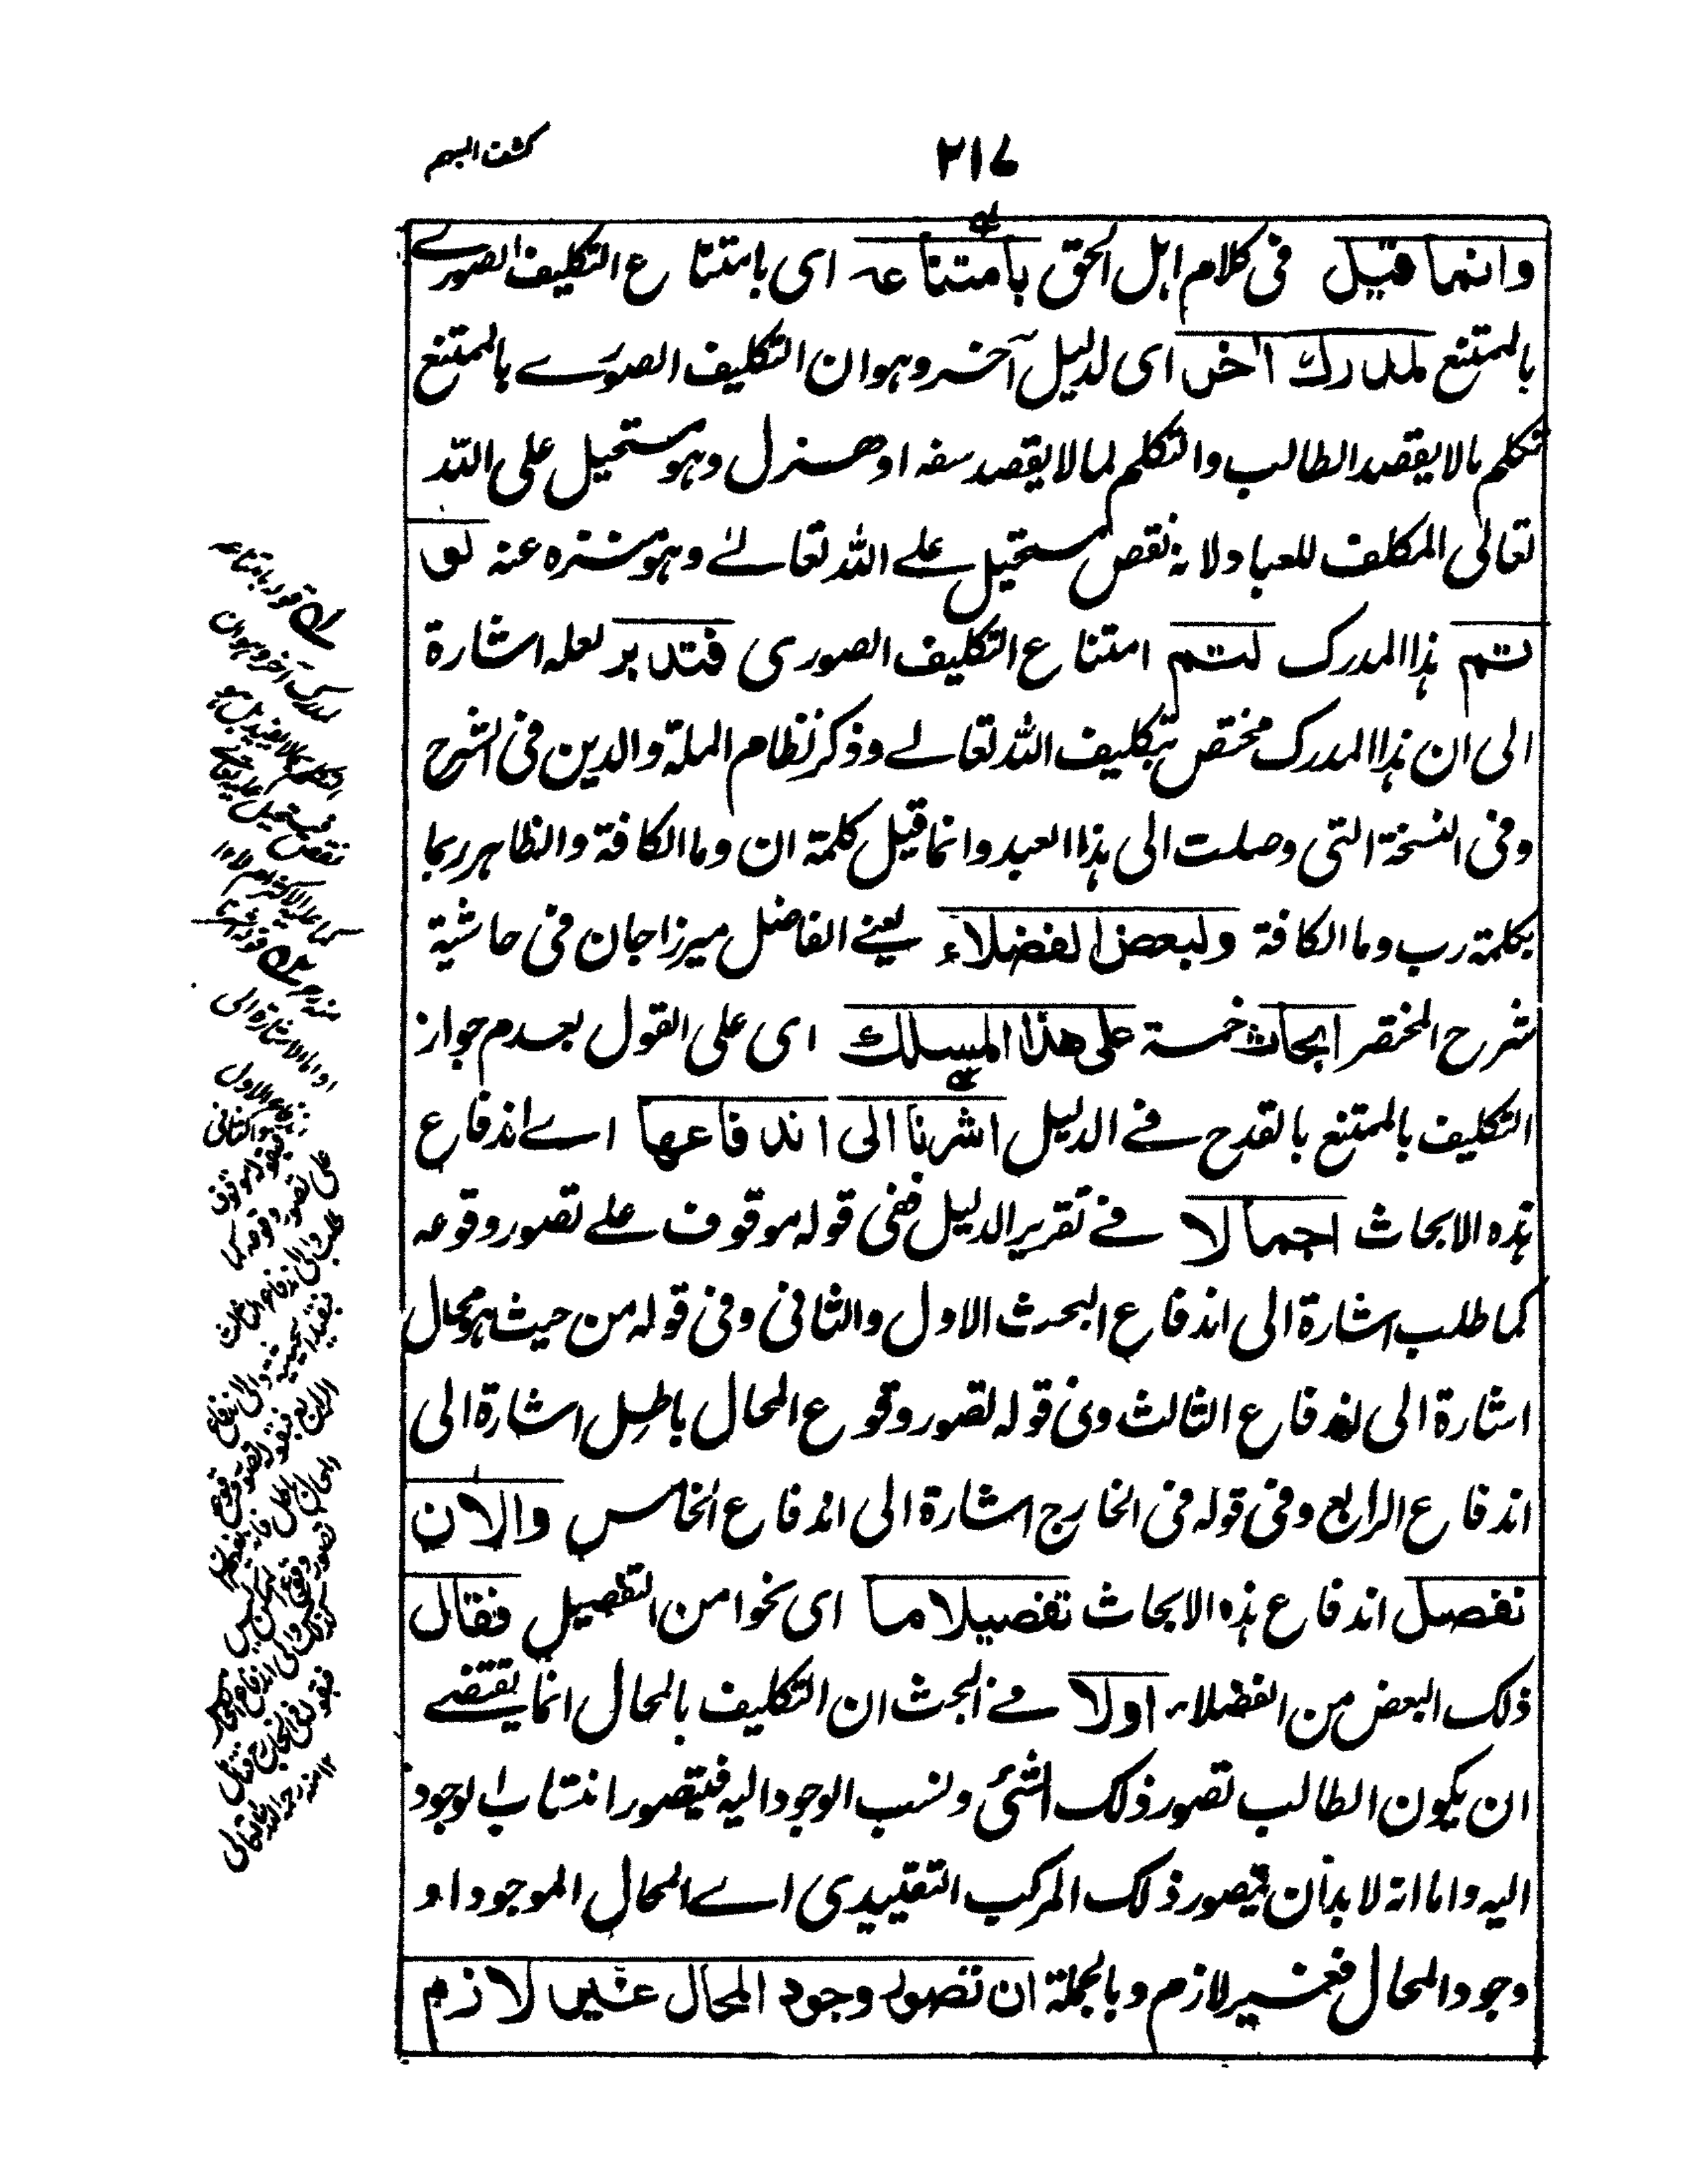 ٢١٧
كشف المبهم
وانما قيل فى كلام اهل الحق بامتناعه اى بامتناع التكليف الصورے
بالممتنع لمدرك اخر اى لدليل آخر وهو ان التكليف الصورے بالممتنع
تكلم بما لا يقصد الطالب والتكلم لما لا يقصد سفه او هزل وهو مستحيل على الله
تعالى المكلف للعباد لانه نقص مستحيل علے الله تعالے وهو منزه عنه لو
تم هذا المدرك لتم امتناع التكليف الصورى فتدبر لعله اشارة
الى ان هذا المدرك مختص بتكليف الله تعالے وذكر نظام الملة والدين فى الشرح
وفى النسخة التى وصلت الى هذا العبد وانما قيل كلمة ان وما الكافة والظاهر ربما
بكلمة رب وما الكافة ولبعض الفضلاء يعنے الفاضل ميرزاجان فى حاشية
شرح المختصر ابحاث خمسة على هذا المسلك اى على القول بعدم جواز
التكليف بالممتنع بالقدح فے الدليل اشرنا الى اندفاعها اے اندفاع
هذه الابحاث اجمالا فے تقرير الدليل ففى قوله موقوف علے تصور وقوعه
كما طلب اشارة الى اندفاع البحث الاول والثانى وفى قوله من حيث هو محال
اشارة الى اندفاع الثالث وفى قوله تصور وقوع المحال باطل اشارة الى
اندفاع الرابع وفى قوله فى الخارج اشارة الى اندفاع الخامس والان
نفصل اندفاع هذه الابحاث تفصيلا ما اى نحوا من التفصيل فقال
ذلك البعض من الفضلاء اولا فے البحث ان التكليف بالمحال انما يقتضے
ان يكون الطالب تصور ذلك الشئ ونسب الوجود اليه فيتصور انتساب الوجود
اليه واما انه لا بد ان يتصور ذلك المركب التقييدى اے المحال الموجود او
وجود المحال فغير لازم وبالجملة ان تصور وجود المحال غير لازم
قوله بامتناعه
لمدرك آخر وهو ان
نقص مستحيل عليه تعالے
او اما الاشارة الى
كما
١٢ منه رحمه الله تعالى